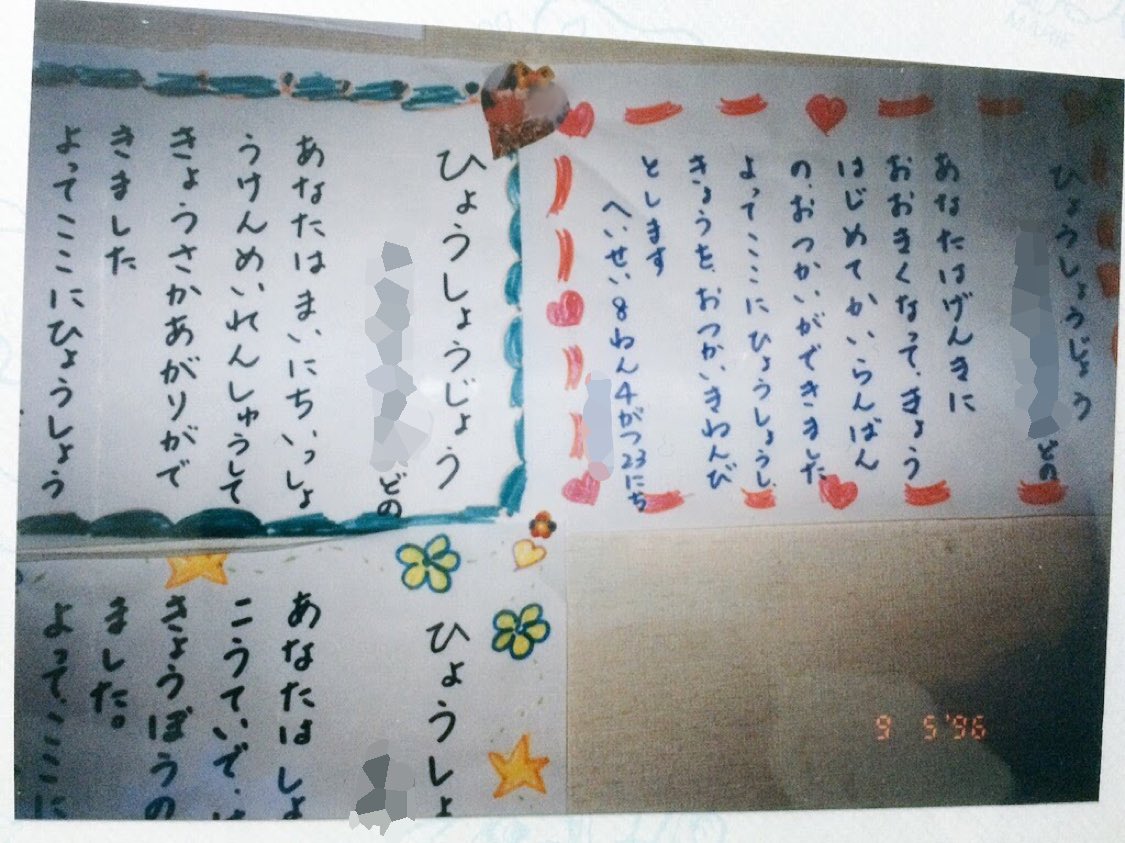 ひょうしょうじょう
どの
あなたはげんきに
おおきくなって、きょう
はじめてかいらんばん
の、おつかいができました
よってここにひょうしょうし
きょうを、おつかいきねんび
とします
へいせい8ねん4がつ23にち
ひょうしょうじょう
どの
あなたはまいにちいっしょ
うけんめいれんしゅうして
きょうさかあがりがで
きました
よってここにひょうしょう
ひょうしょ
あなたはしょ
こうていで、
きょうぼうの
ました。
よって、ここに
9 5'96